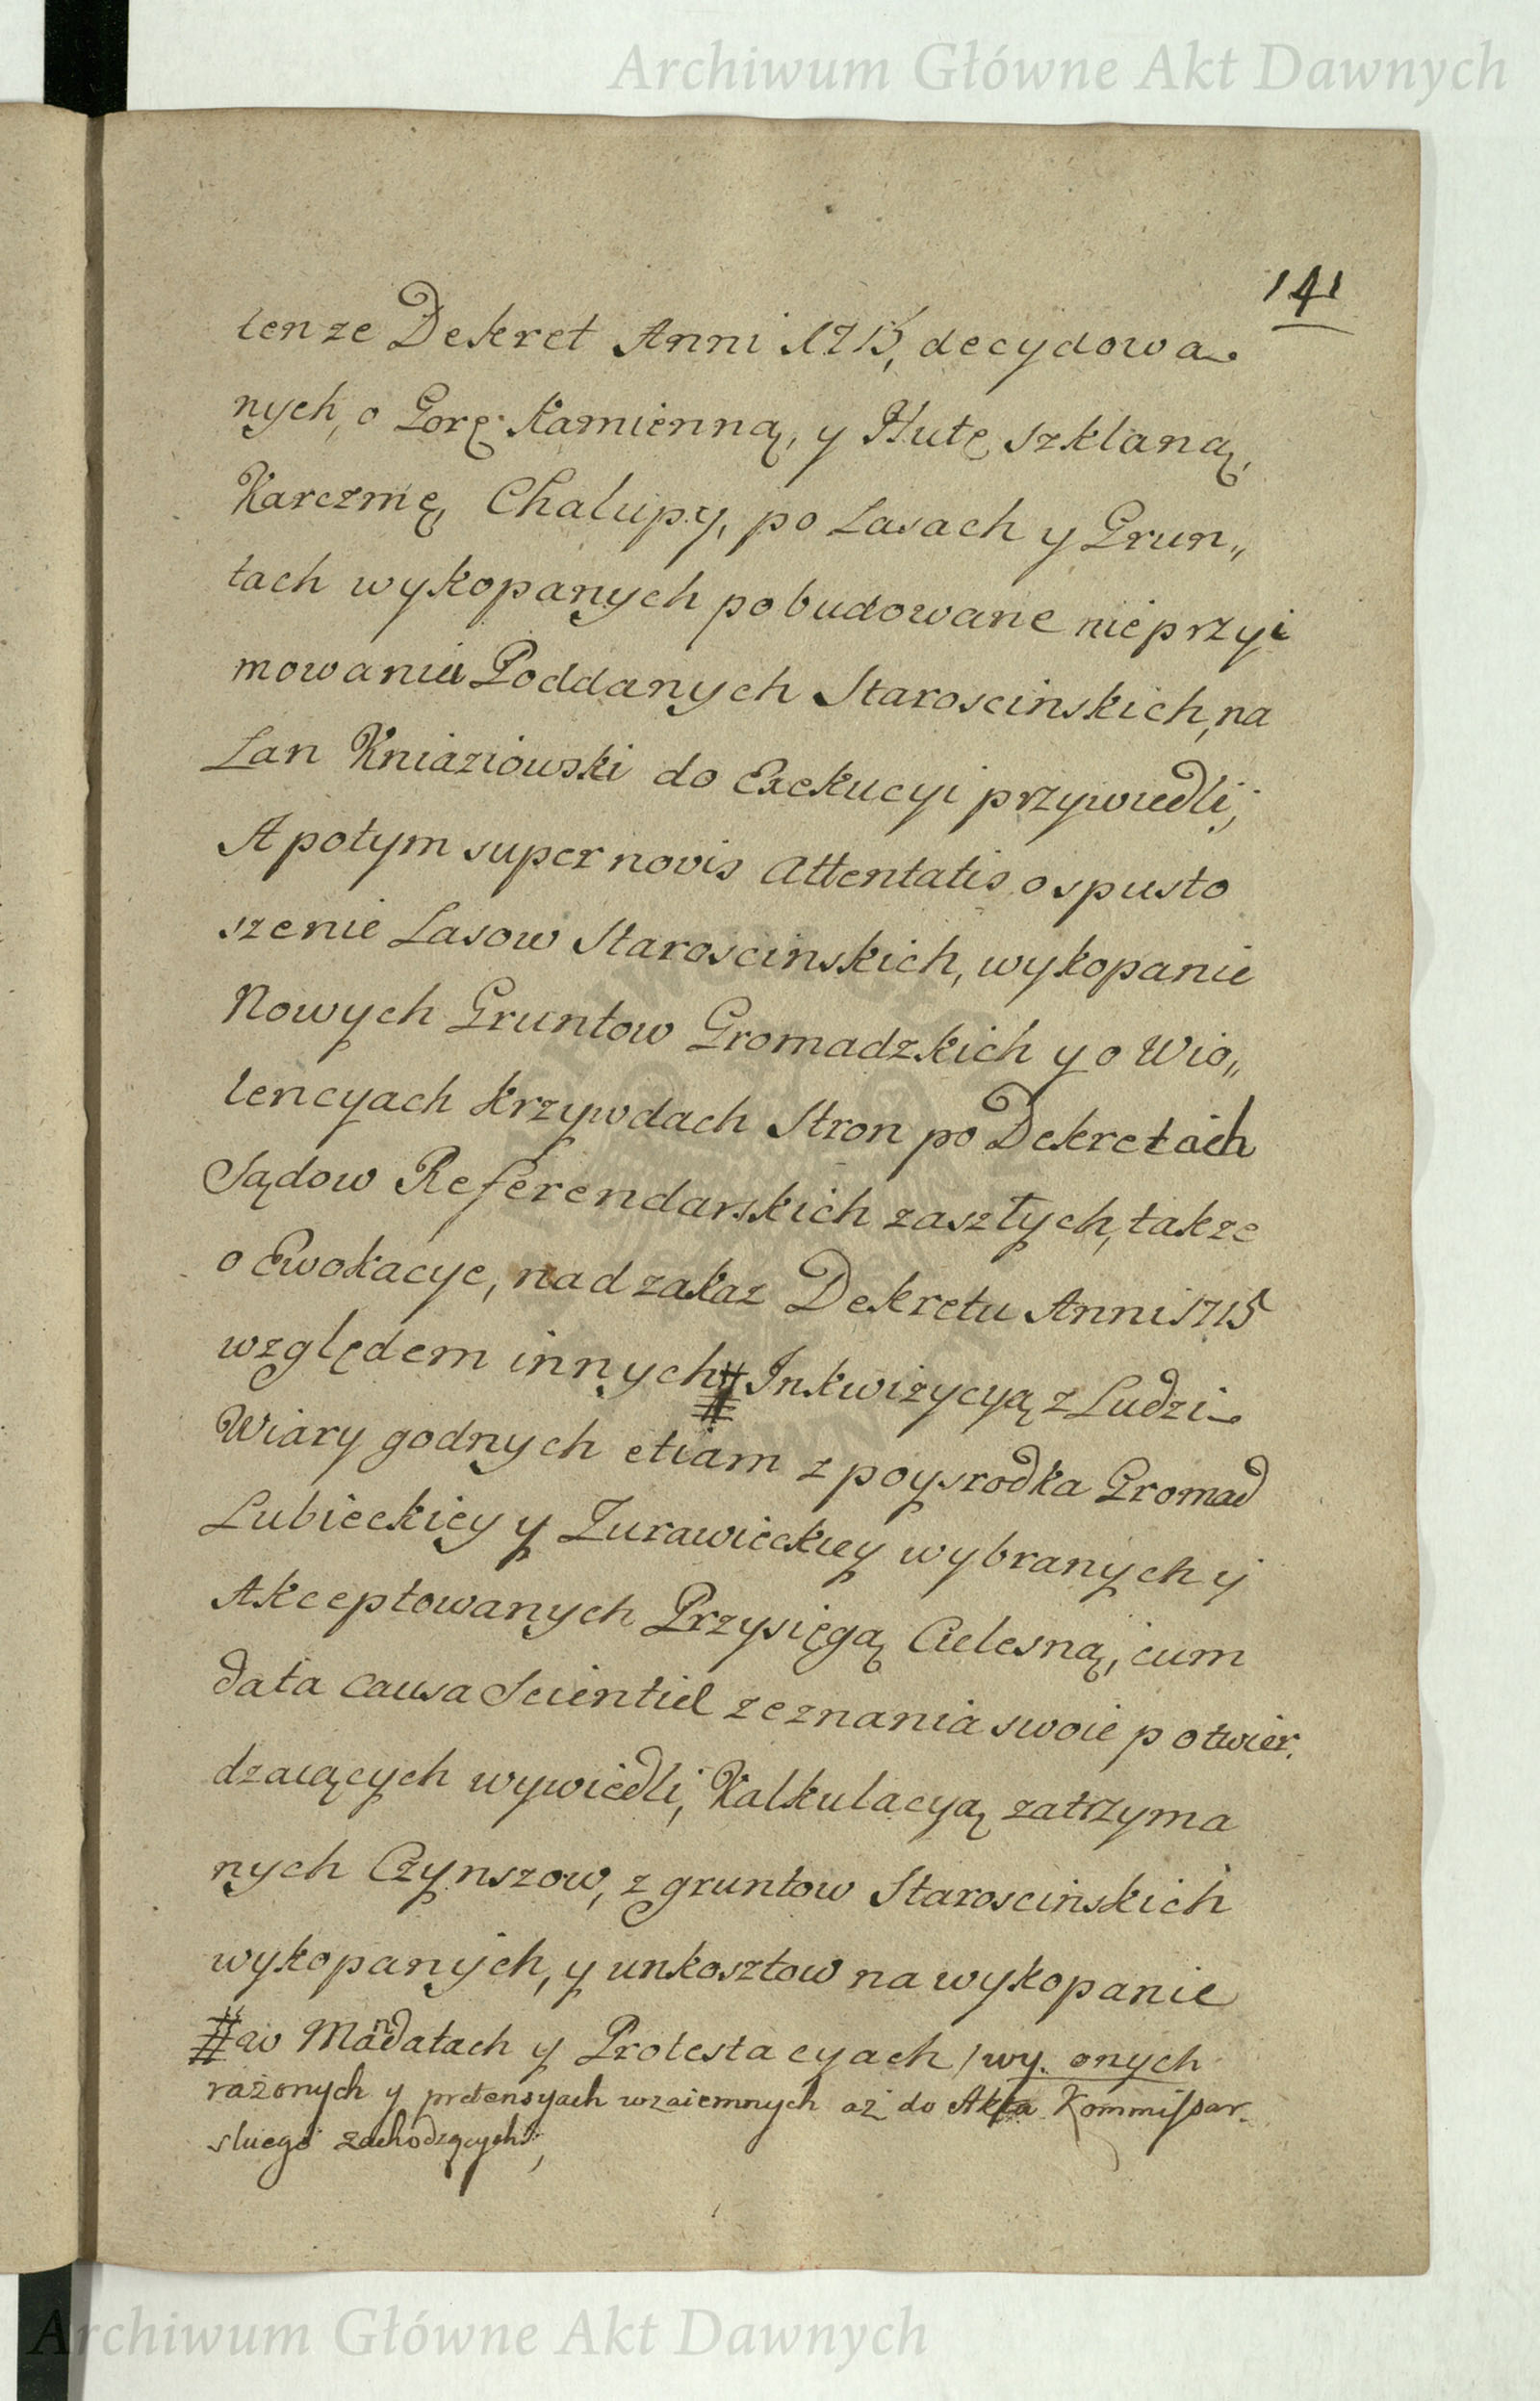 Archiwum Główne Akt Dawnych
141
tenze Dekret Anni 1715, decydowa
nych, o Gorę Kamienną, y Hutę szklaną,
Karczmę, Chalupy, po Lasach y Grun„
tach wykopanych pobudowane nieprzyi
mowaniu Poddanych Staroscinskich, na
Lan Kniaziowski do Exekucyi przywiedli,
A potym super novis Attentatis o spusto
szenie Lasow Staroscinskich, wykopanie
Nowych Gruntow Gromadzkich y o Wio„
lencyach krzywdach Stron po Dekretach
Sądow Referendarskich zaszłych, takze
o Ewokacye, nad zakaz Dekretu Anni 1715
względem innych # Inkwizycyą z Ludzi
Wiary godnych etiam z poysrodka Gromad
Lubieckiey y Zurawieckiey wybranych y
Akceptowanych Przysięgą Cielesną, cum
data causa Scientiæ zeznania swoie potwier.
dzaiących wywiedli, Kalkulacyą zatrzyma
nych Czynszow, z gruntow Staroscinskich
wykopanych, y unkosztow na wykopanie
onych
# w Mandatach y Protestacyach / wy.
rażonych y pretensyach wzaiemnych aż do Akta Kommissar.
skiego zachodzących,
Archiwum Główne Akt Dawnych